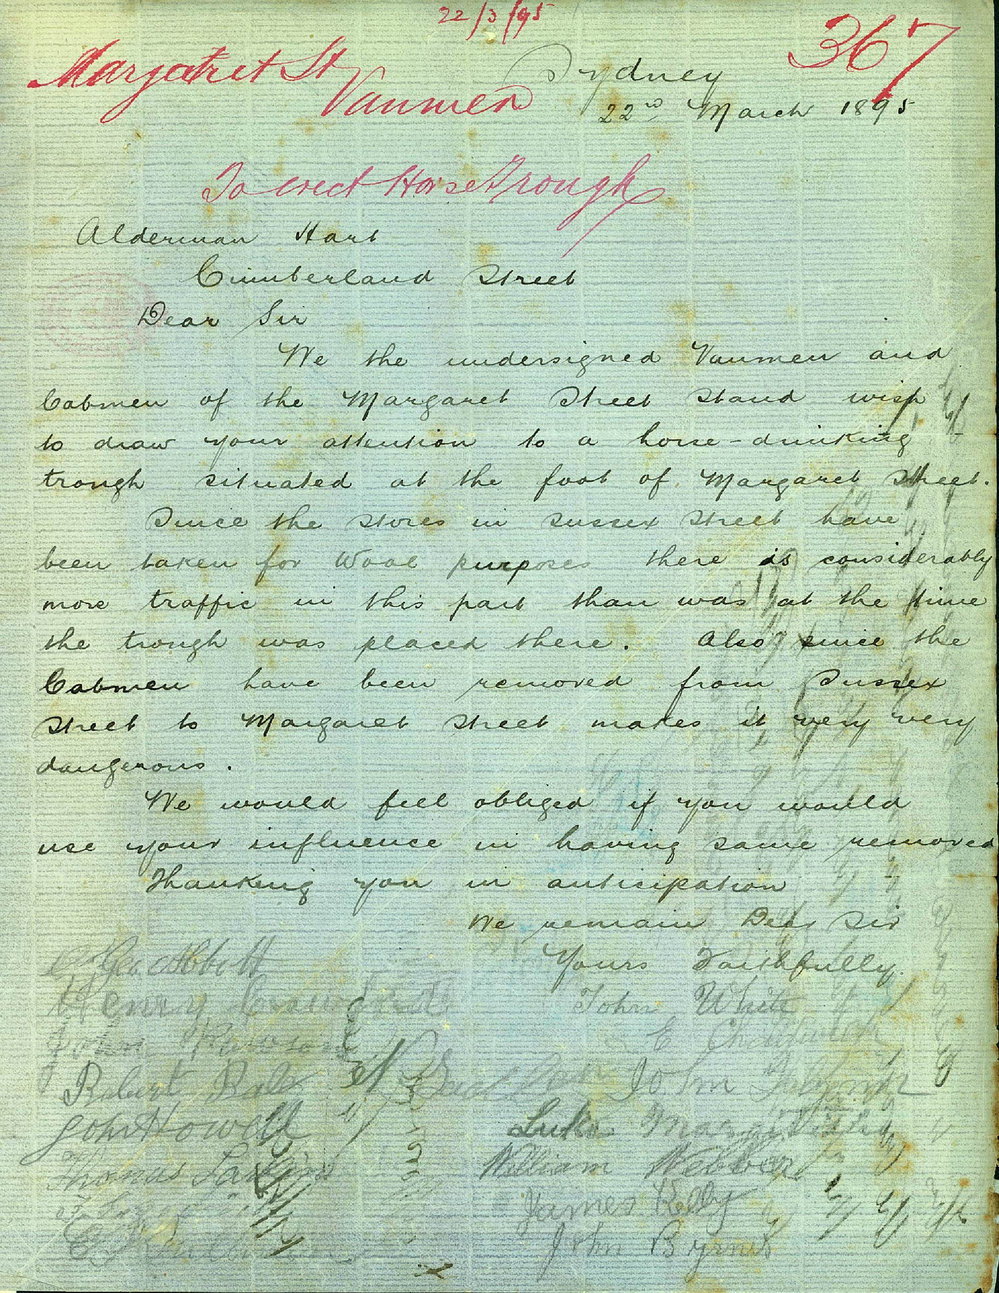 22/3/95
367
Margaret St
Vanmen
Sydney
22nd March 1895
To erect Horse Trough
Alderman Hart
Cumberland Street
Dear Sir
We the undersigned Vanmen and
Cabmen of the Margaret Street Stand wish
to draw your attention to a horse-drinking-
trough situated at the foot of Margaret Street.
Since the Stores in Sussex Street have
been taken for Wool purposes there is considerably
more traffic in this part than was at the time
the trough was placed there. Also since the
Cabmen have been removed from Sussex
Street to Margaret Street makes it very very
dangerous.
We would feel obliged if you would
use your influence in having same removed
Thanking you in anticipation
We remain Dear Sir
Yours Faithfully.
Geo Abbott
Henry Crawford
John White
John
Robert
John
John Howell
Luke
Thomas
William Webber
James Kelly
John Byrnes